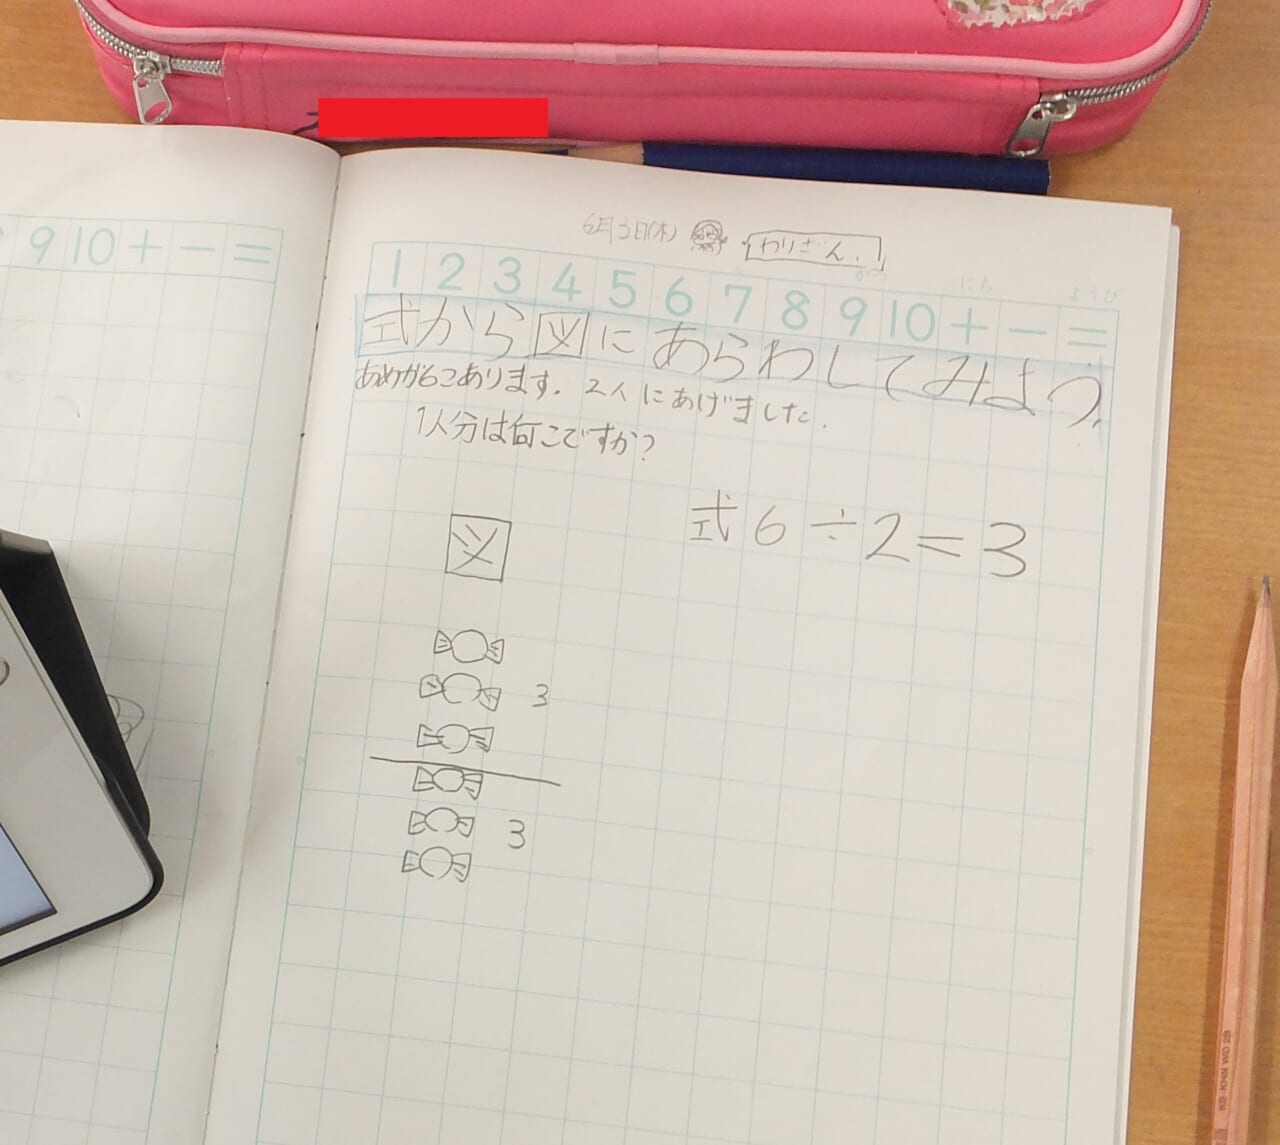 9 10 + − =
6月3日(木) わりざん.
1 2 3 4 5 6 7 8 9 10 + − =
にち ようび
式から図にあらわしてみよう.
あめが6こあります. 2人にあげました.
1人分は何こですか?
図
式6÷2=3
3
3
KB-KNN WD 2B